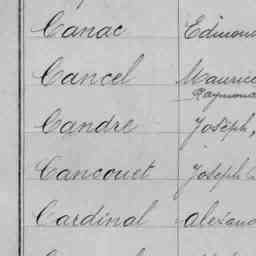 Canac Edmond
Cancel Maurice
Raymond
Candre Joseph,
Cancouet Joseph
Cardinal Alexand